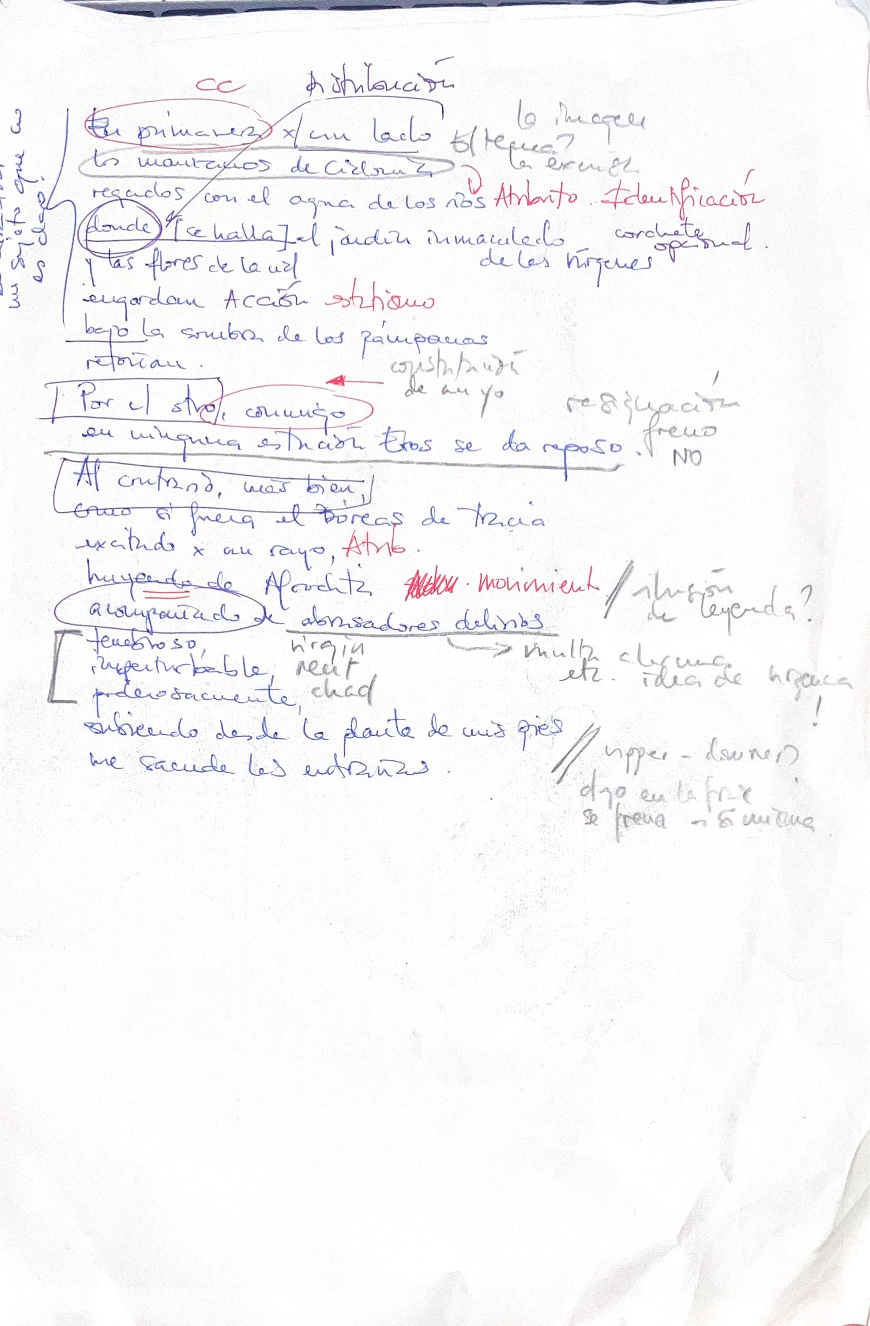 CC distribución
En primavera x un lado la imagen
los manzanos de Cidonia
regados con el agua de los ríos Atributo. Identificación
donde [se halla] el jardín inmaculado corchete opcional.
y las flores de la vid de las vírgenes
engordan Acción
bajo la sombra de los pámpanos
retoñan.
Por el otro, conmigo de un yo
en ninguna estación Eros se da reposo. freno
NO
Al contrario, más bien,
como si fuera el Bóreas de Tracia
excitado x un rayo, Atrib.
huyendo de Afrodita movimient
acompañado de abrasadores delirios de leyenda?
tenebroso,
imperturbable, etc. idea de
poderosamente,
subiendo desde la planta de mis pies
me sacude las entrañas. upper - downer?
algo en la frase
se frena a sí misma
un sujeto que